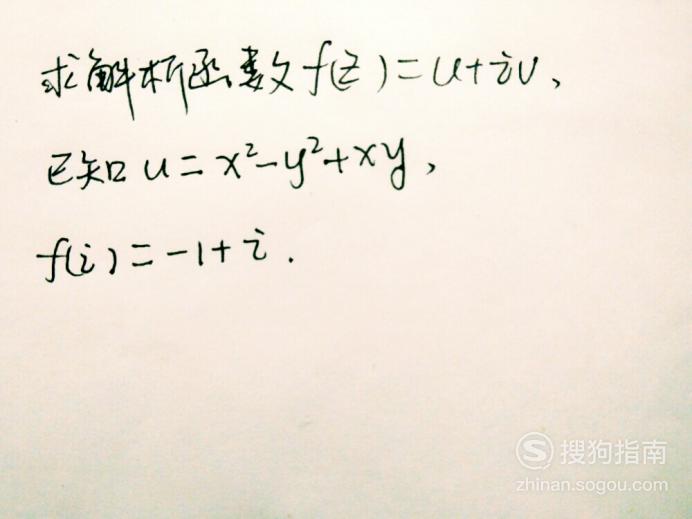 求解析函数f(z)=u+iv,
已知u=x²-y²+xy,
f(i)=-1+i.
S 搜狗指南
zhinan.sogou.com